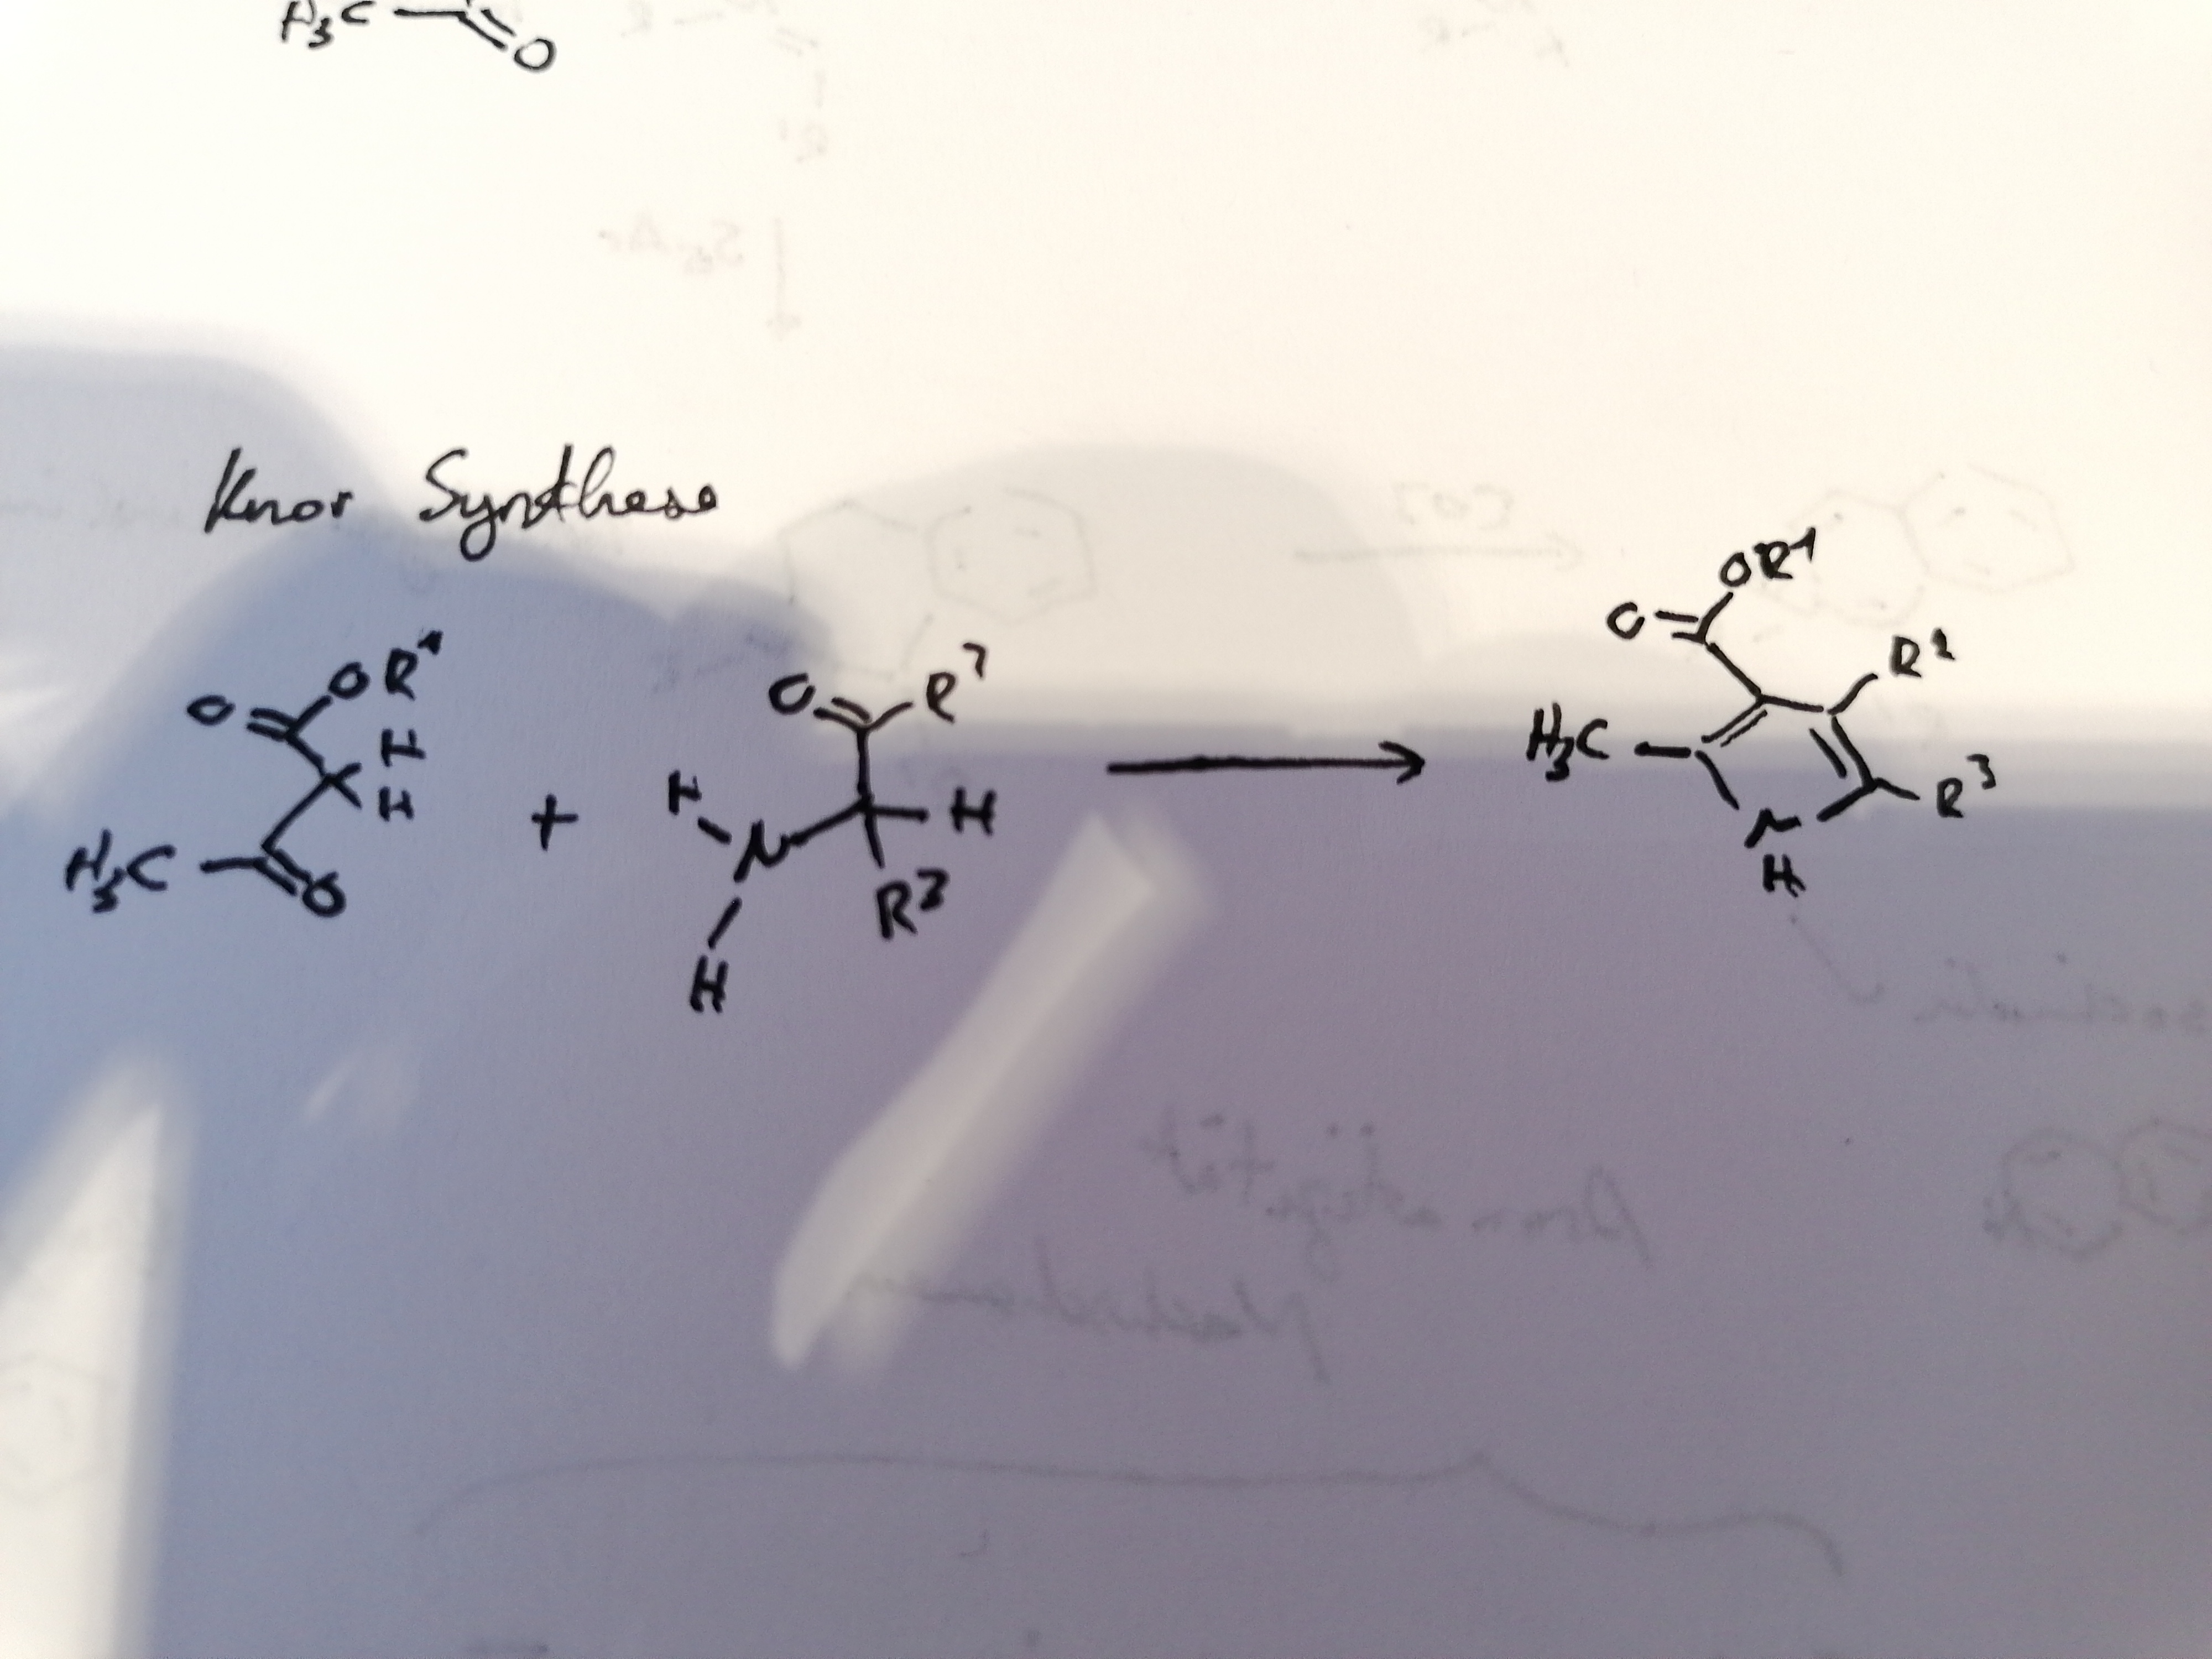 H3C O
Knor Synthese
O OR1 H H H3C O + O R2 H N H H R3 O OR1 R2 H3C R3 N H